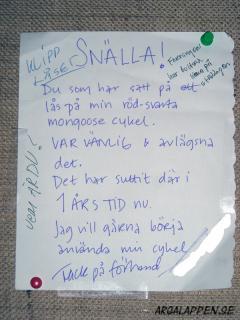 KLIPP
LÅSET
SNÄLLA!
Föreningen
har
Du som har satt på ett
lås på min röd-svarta
mongoose cykel.
VAR VÄNLIG & avlägsna
det.
Det har suttit där i
1 ÅRS TID nu.
Jag vill gärna börja
använda min cykel
Tack på förhand
VEM ÄR DU?
ARGALAPPEN.SE